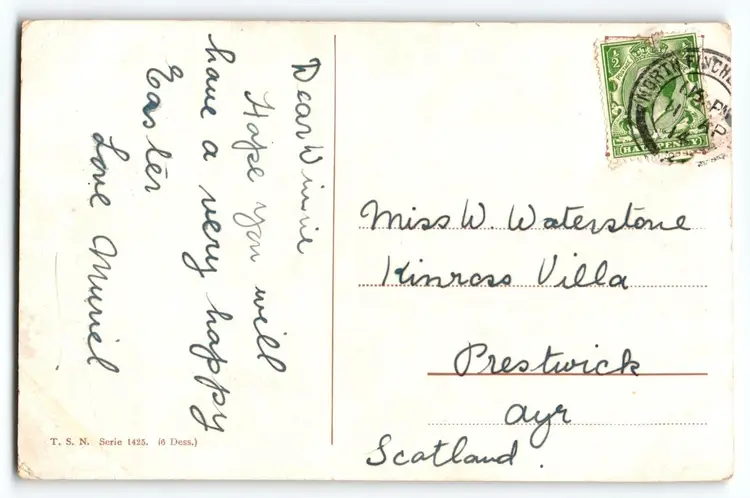 Dear Winnie
Hope you will
have a very happy
Easter
Love Muriel
T. S. N. Serie 1425. (6 Dess.)
½ ½
HALFPENNY
NORTH FINCHL
AP
14
Miss W. Waterstone
Kinross Villa
Prestwick
Ayr
Scotland.